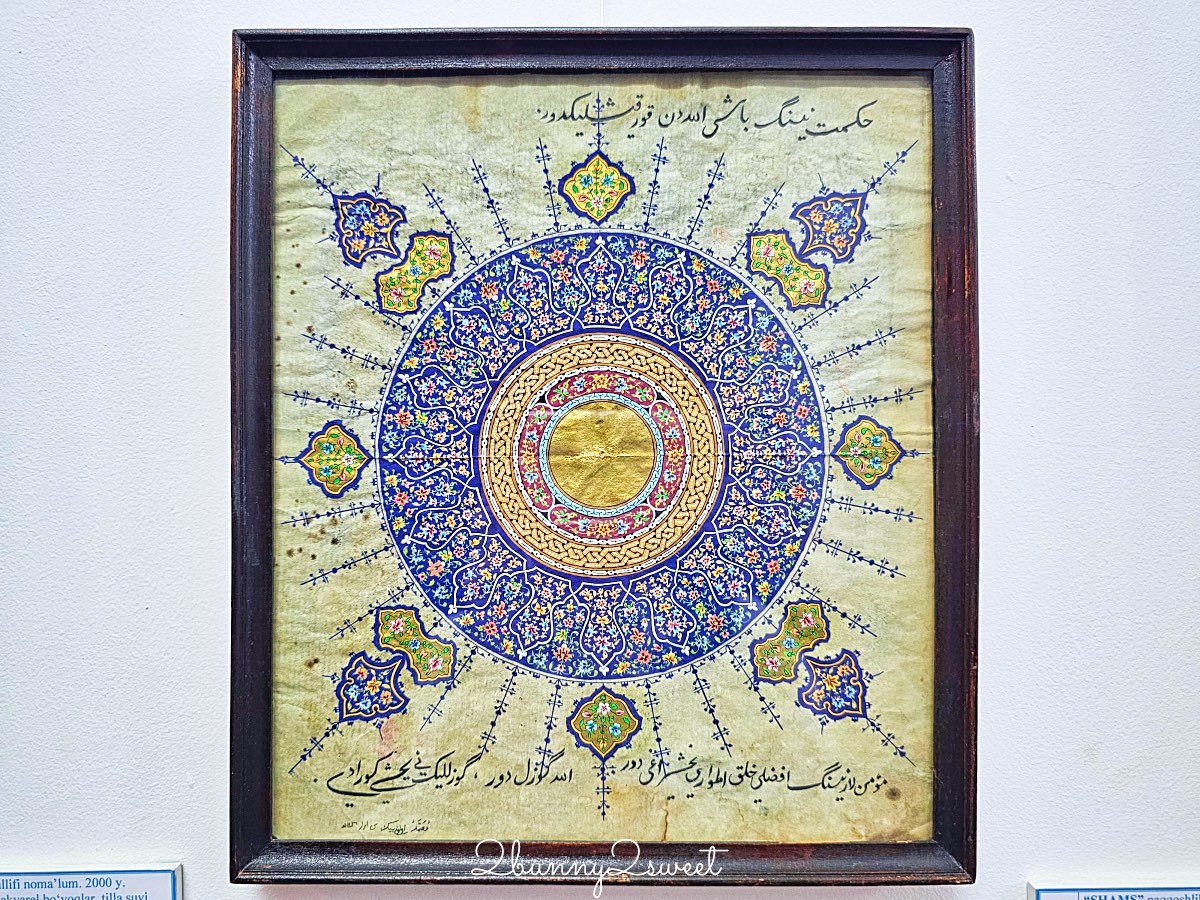 حکمت نینگ باشی الله دن قورقیشلیکدور.
مؤمن لارنینگ افضلی خلق اطواری یخشیراغی دور. الله گوزل دور ، گوزللیک نی یخشی کورادی.
2bunny2sweet
llifi noma'lum. 2000 y.
akvarel bo'yoqlar, tilla suvi
“SHAMS” naqqoshli